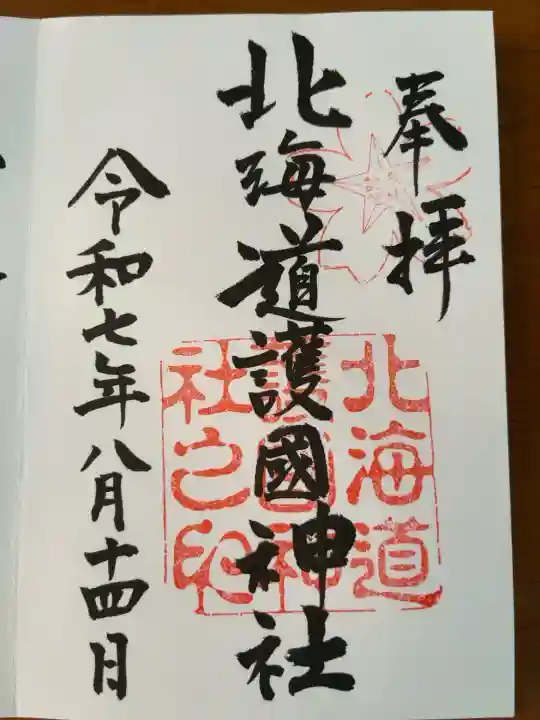 奉拝
北海道護國神社
令和七年八月十四日
北海道
護國神
社之印